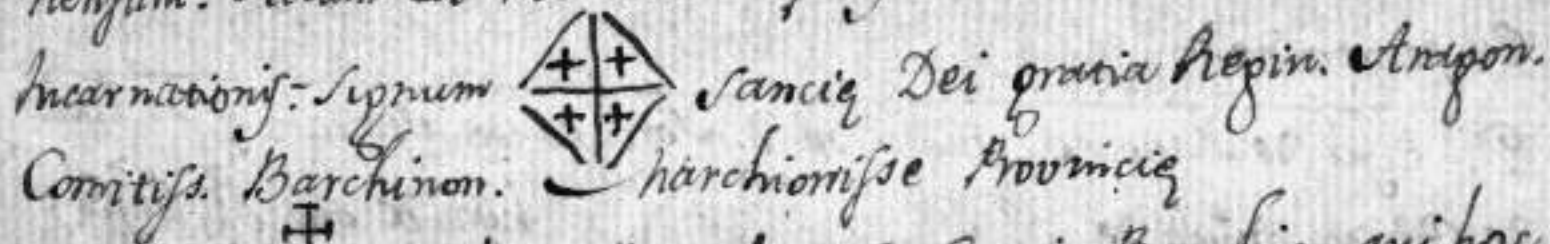 Incarnationis: Signum Sancię Dei gratia Regin. Aragon.
Comitiss. Barchinon. Marchionisse Provincię